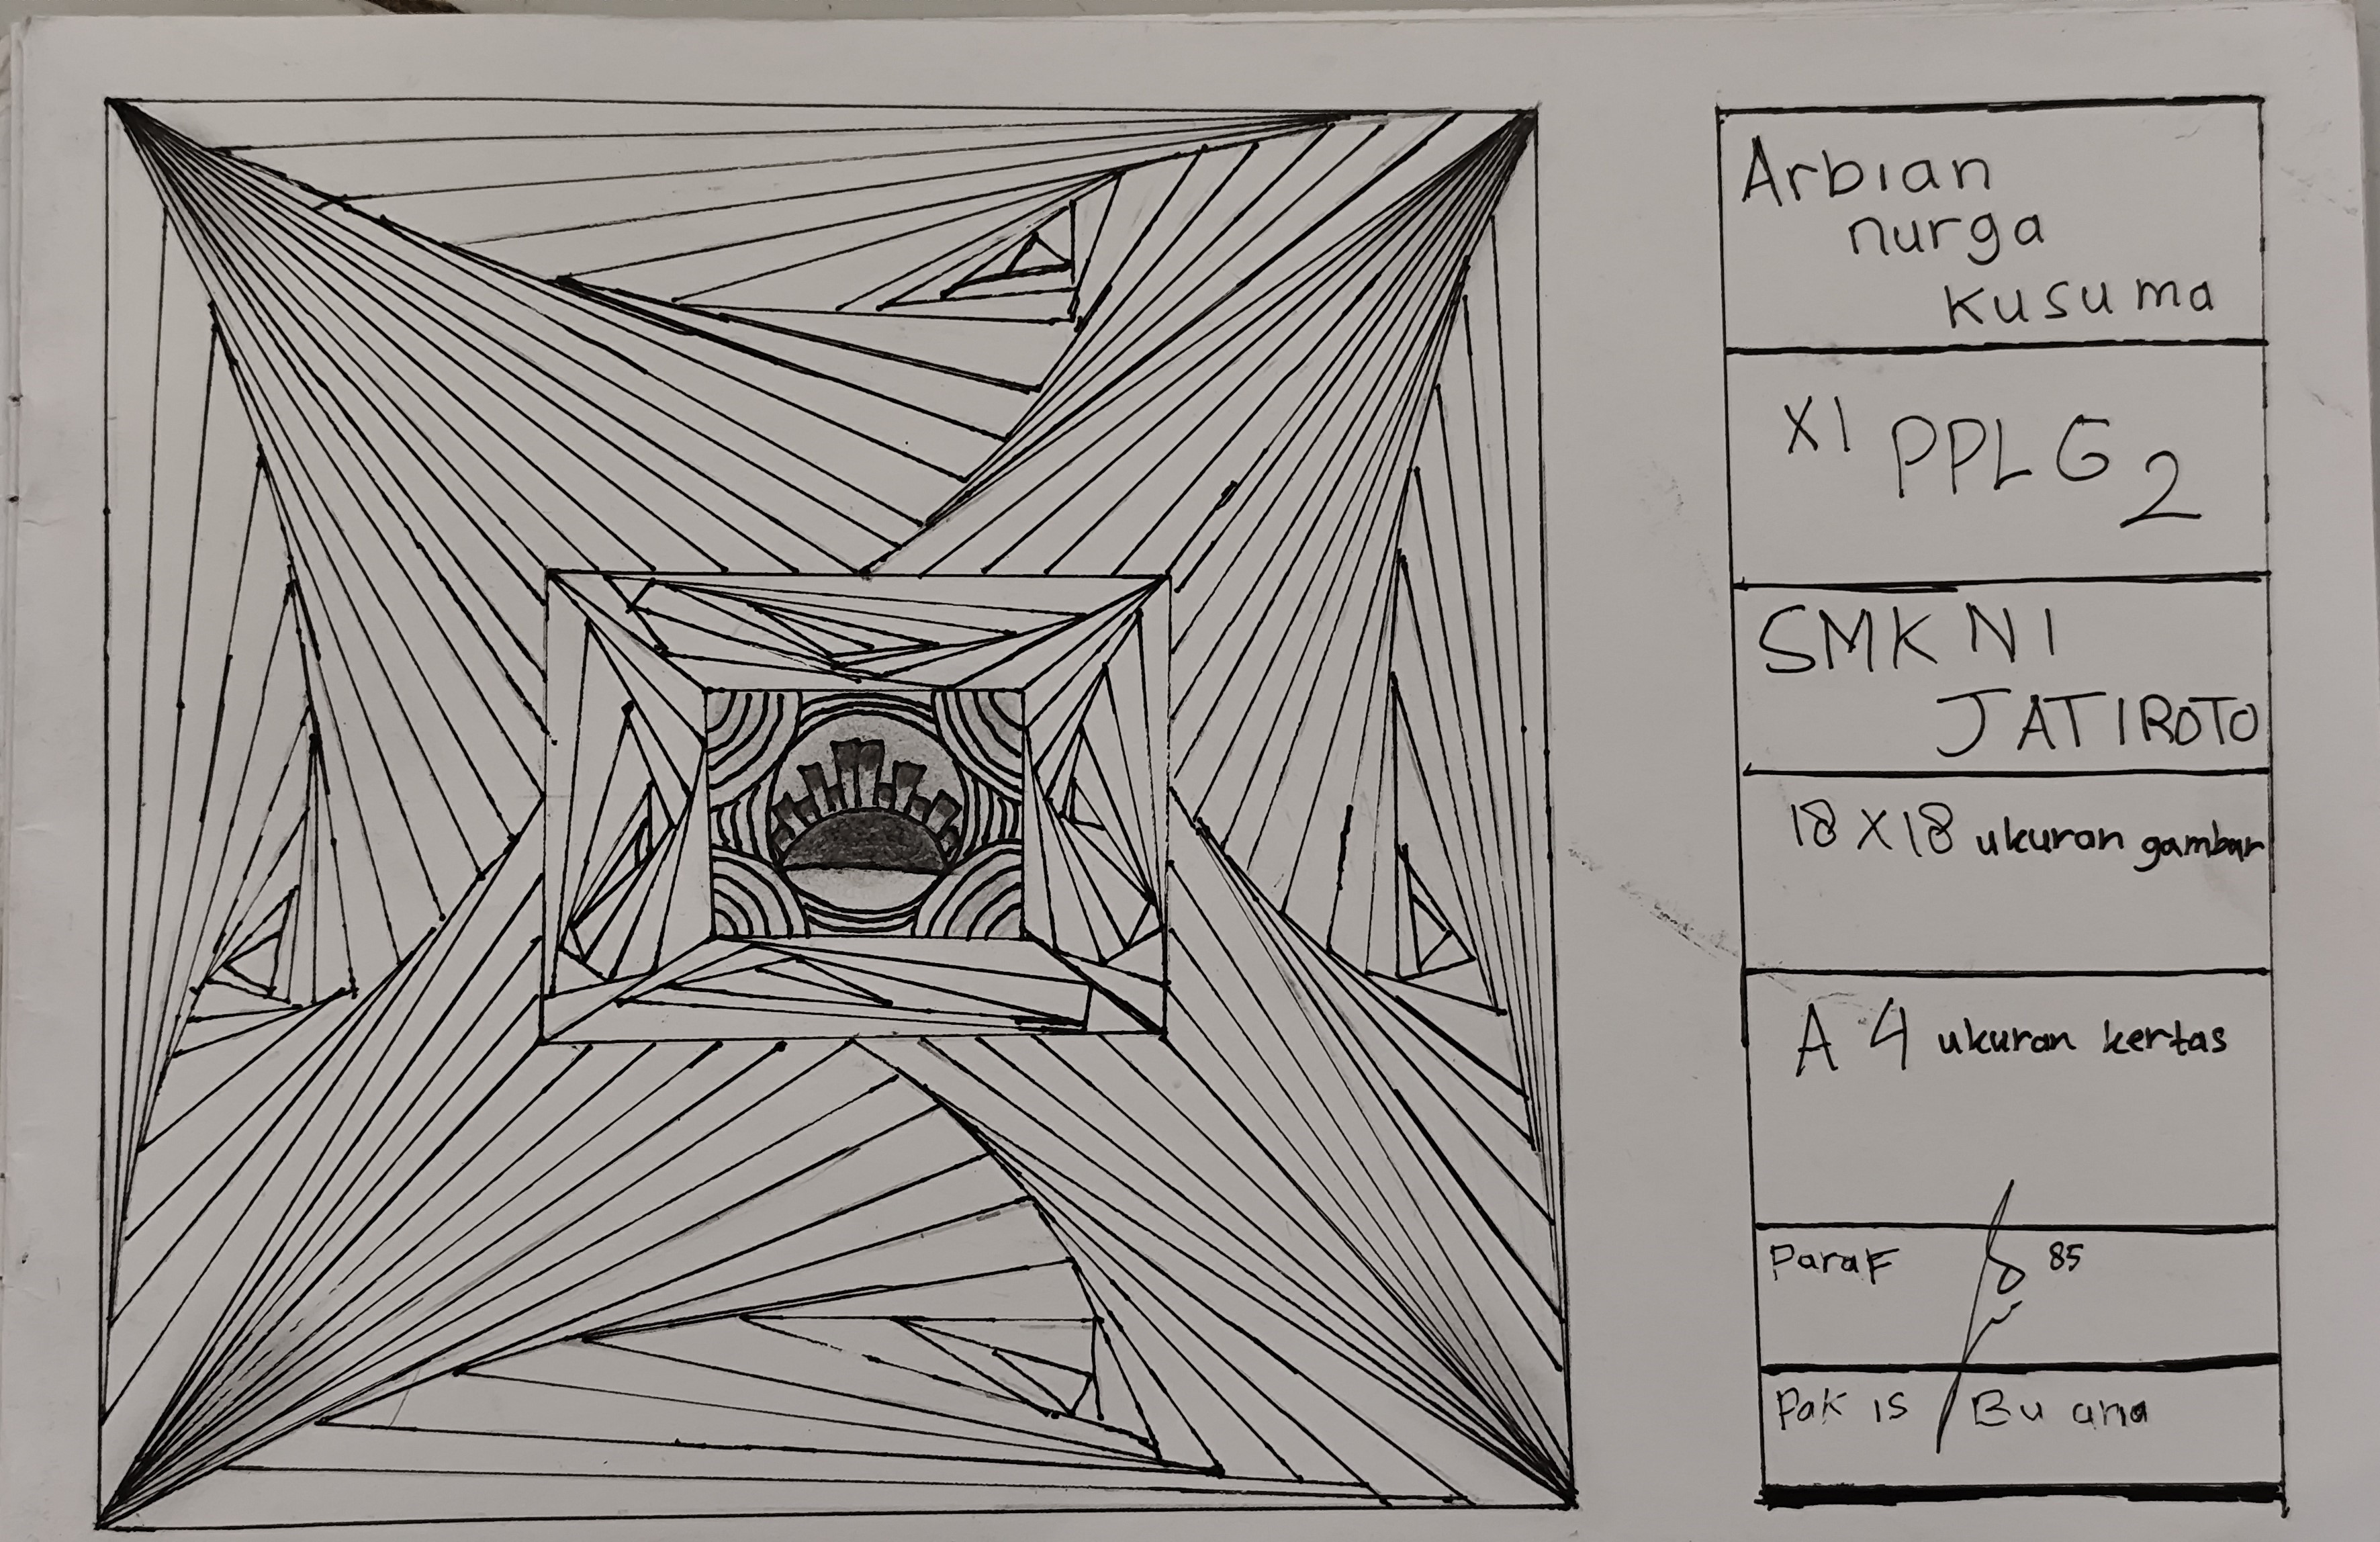 Arbian
nurga
kusuma
XI PPLG 2
SMK N 1
JATIROTO
18 X 18 ukuran gambar
A 4 ukuran kertas
Paraf 85
Pak is / Bu ana